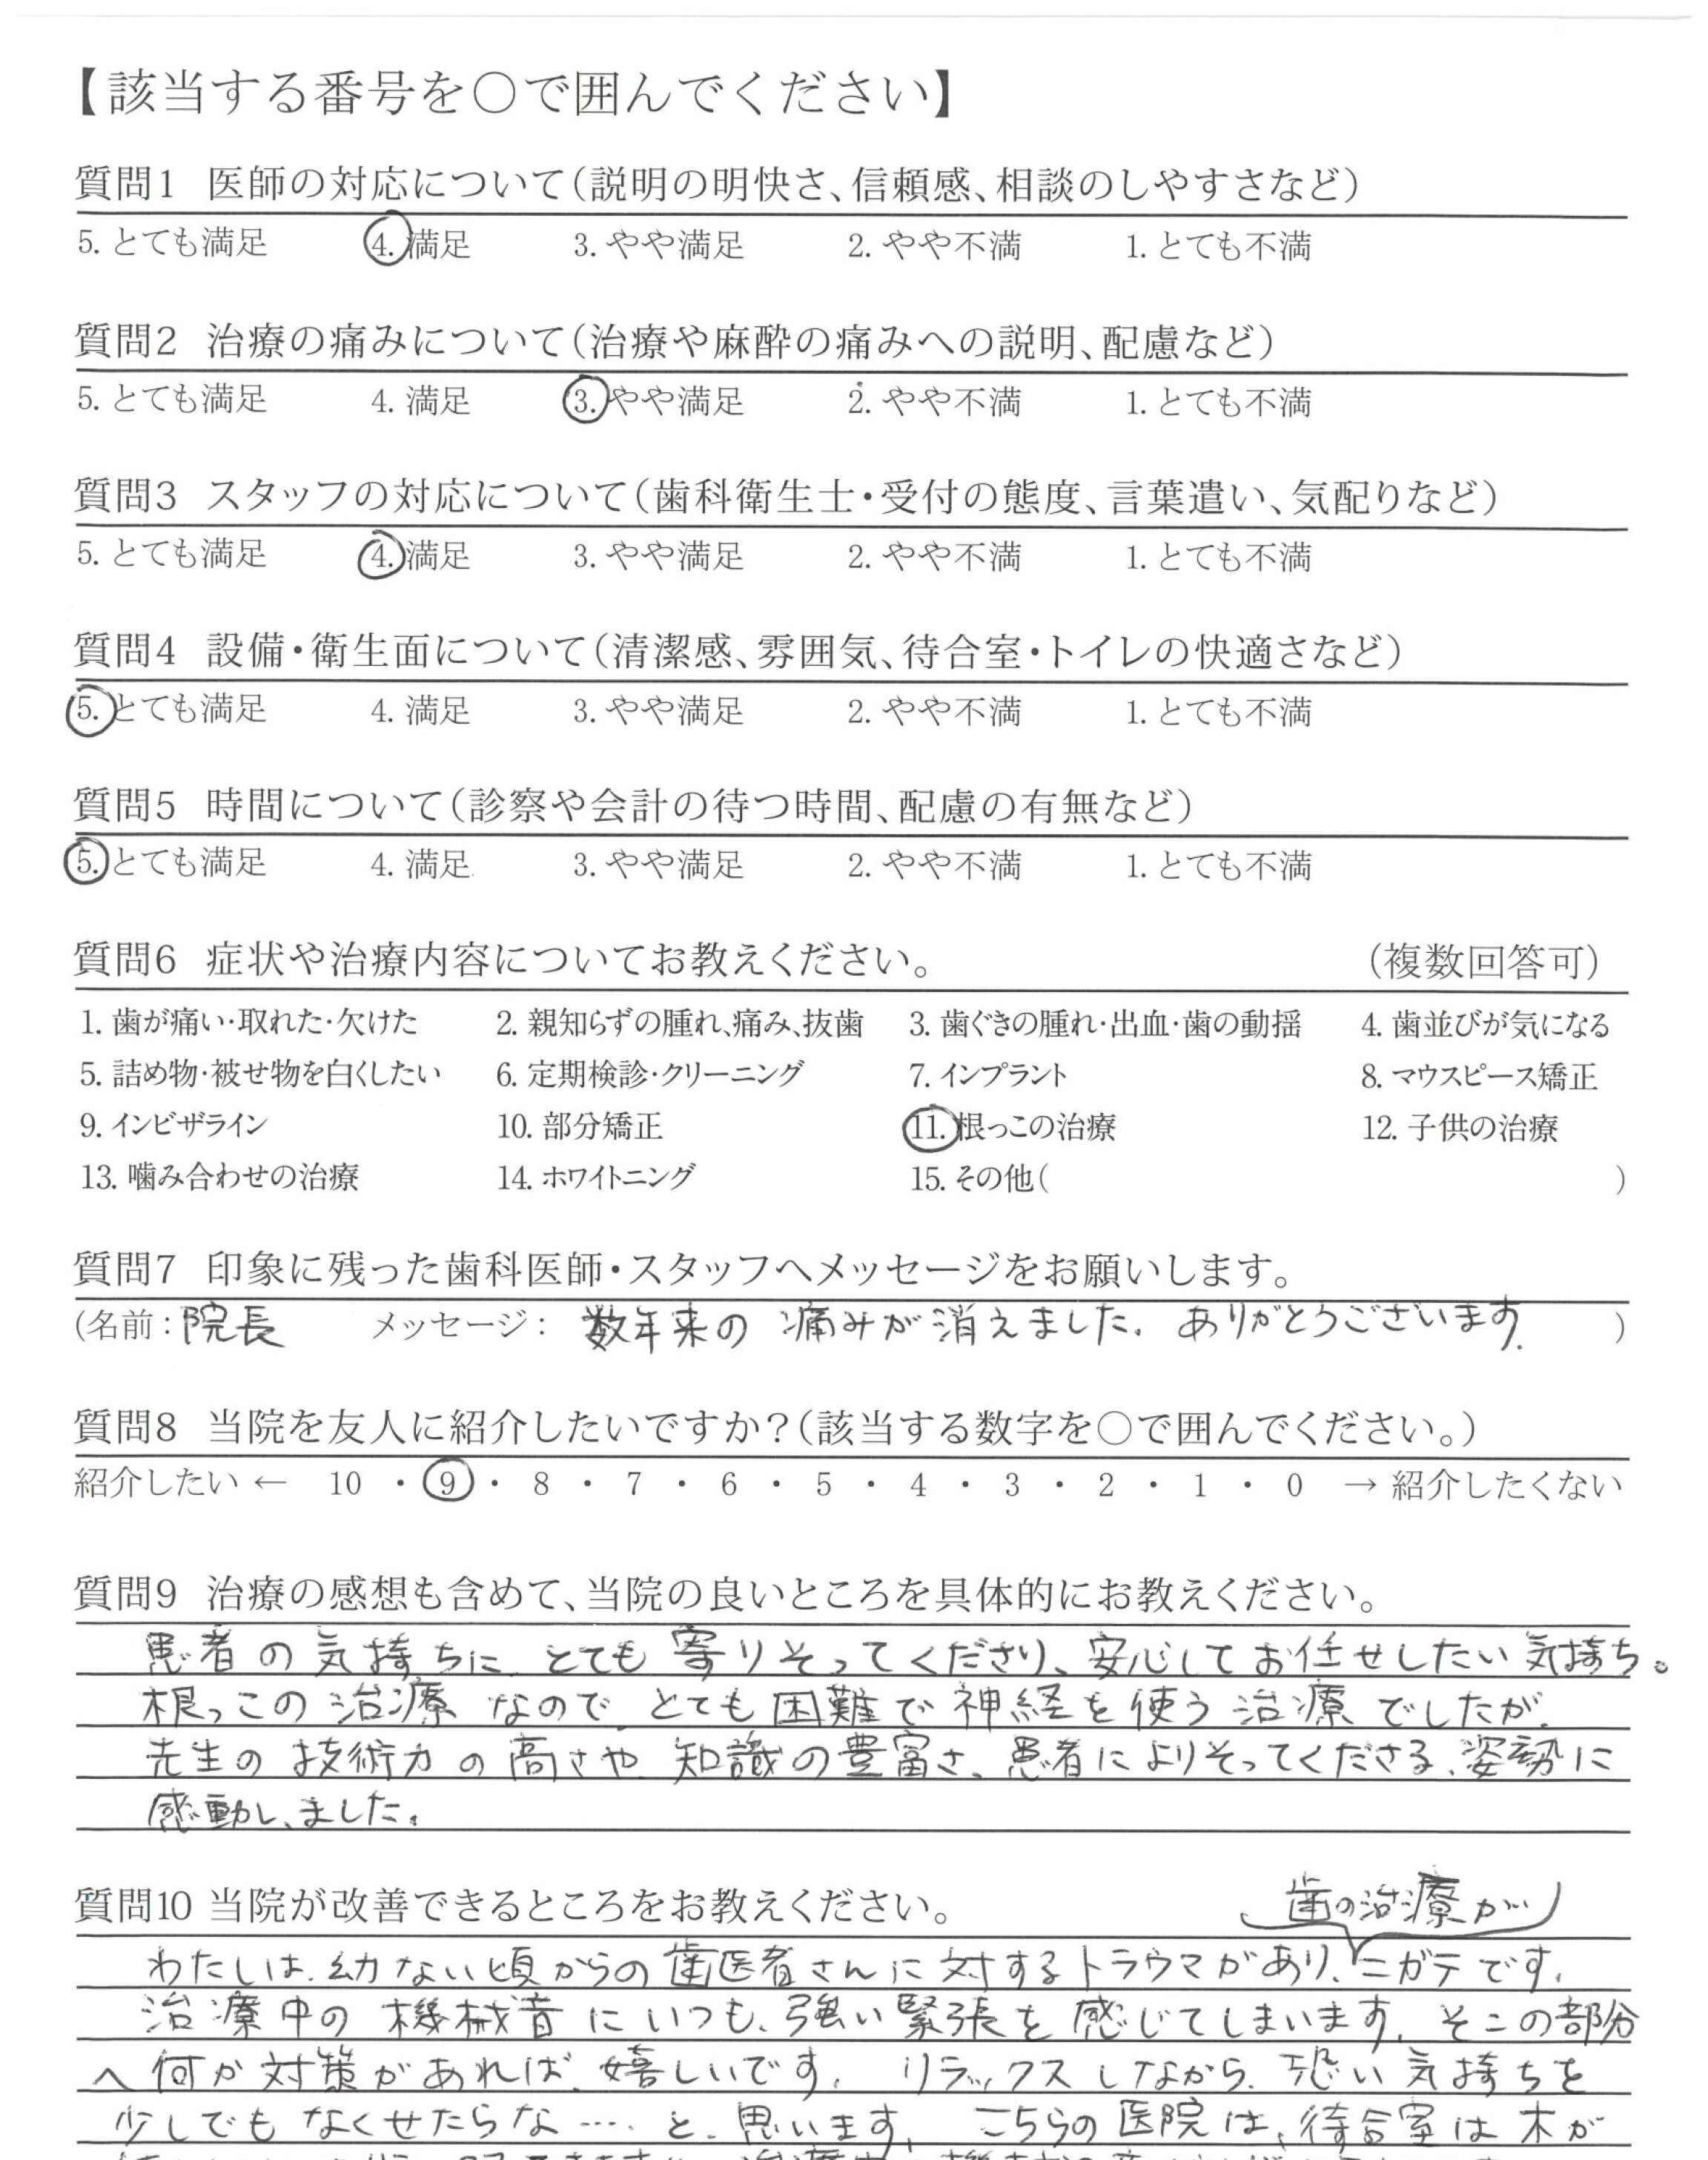 【該当する番号を○で囲んでください】
質問1 医師の対応について(説明の明快さ、信頼感、相談のしやすさなど)
5. とても満足 4. 満足 3. やや満足 2. やや不満 1. とても不満
質問2 治療の痛みについて(治療や麻酔の痛みへの説明、配慮など)
5. とても満足 4. 満足 3. やや満足 2. やや不満 1. とても不満
質問3 スタッフの対応について(歯科衛生士・受付の態度、言葉遣い、気配りなど)
5. とても満足 4. 満足 3. やや満足 2. やや不満 1. とても不満
質問4 設備・衛生面について(清潔感、雰囲気、待合室・トイレの快適さなど)
5. とても満足 4. 満足 3. やや満足 2. やや不満 1. とても不満
質問5 時間について(診察や会計の待つ時間、配慮の有無など)
5. とても満足 4. 満足 3. やや満足 2. やや不満 1. とても不満
質問6 症状や治療内容についてお教えください。 (複数回答可)
1. 歯が痛い・取れた・欠けた 2. 親知らずの腫れ、痛み、抜歯 3. 歯ぐきの腫れ・出血・歯の動揺 4. 歯並びが気になる
5. 詰め物・被せ物を白くしたい 6. 定期検診・クリーニング 7. インプラント 8. マウスピース矯正
9. インビザライン 10. 部分矯正 11. 根っこの治療 12. 子供の治療
13. 噛み合わせの治療 14. ホワイトニング 15. その他( )
質問7 印象に残った歯科医師・スタッフへメッセージをお願いします。
(名前：院長 メッセージ： 数年来の痛みが消えました。ありがとうございます。 )
質問8 当院を友人に紹介したいですか？(該当する数字を○で囲んでください。)
紹介したい ← 10 ・ 9 ・ 8 ・ 7 ・ 6 ・ 5 ・ 4 ・ 3 ・ 2 ・ 1 ・ 0 → 紹介したくない
質問9 治療の感想も含めて、当院の良いところを具体的にお教えください。
患者の気持ちに、とても寄りそってくださり、安心してお任せしたい気持ち。
根っこの治療なので、とても困難で神経を使う治療でしたが、
先生の技術力の高さや、知識の豊富さ、患者によりそってくださる、姿勢に
感動し、ました。
質問10 当院が改善できるところをお教えください。
歯の治療が
わたしは、幼ない頃からの歯医者さんに対するトラウマがあり、ニガテです。
治療中の機械音にいつも、強い緊張を感じてしまいます。そこの部分
へ何か対策があれば、嬉しいです。リラックスしながら、恐い気持ちを
少しでもなくせたらな…‥と、思います。こちらの医院は、待合室は木が